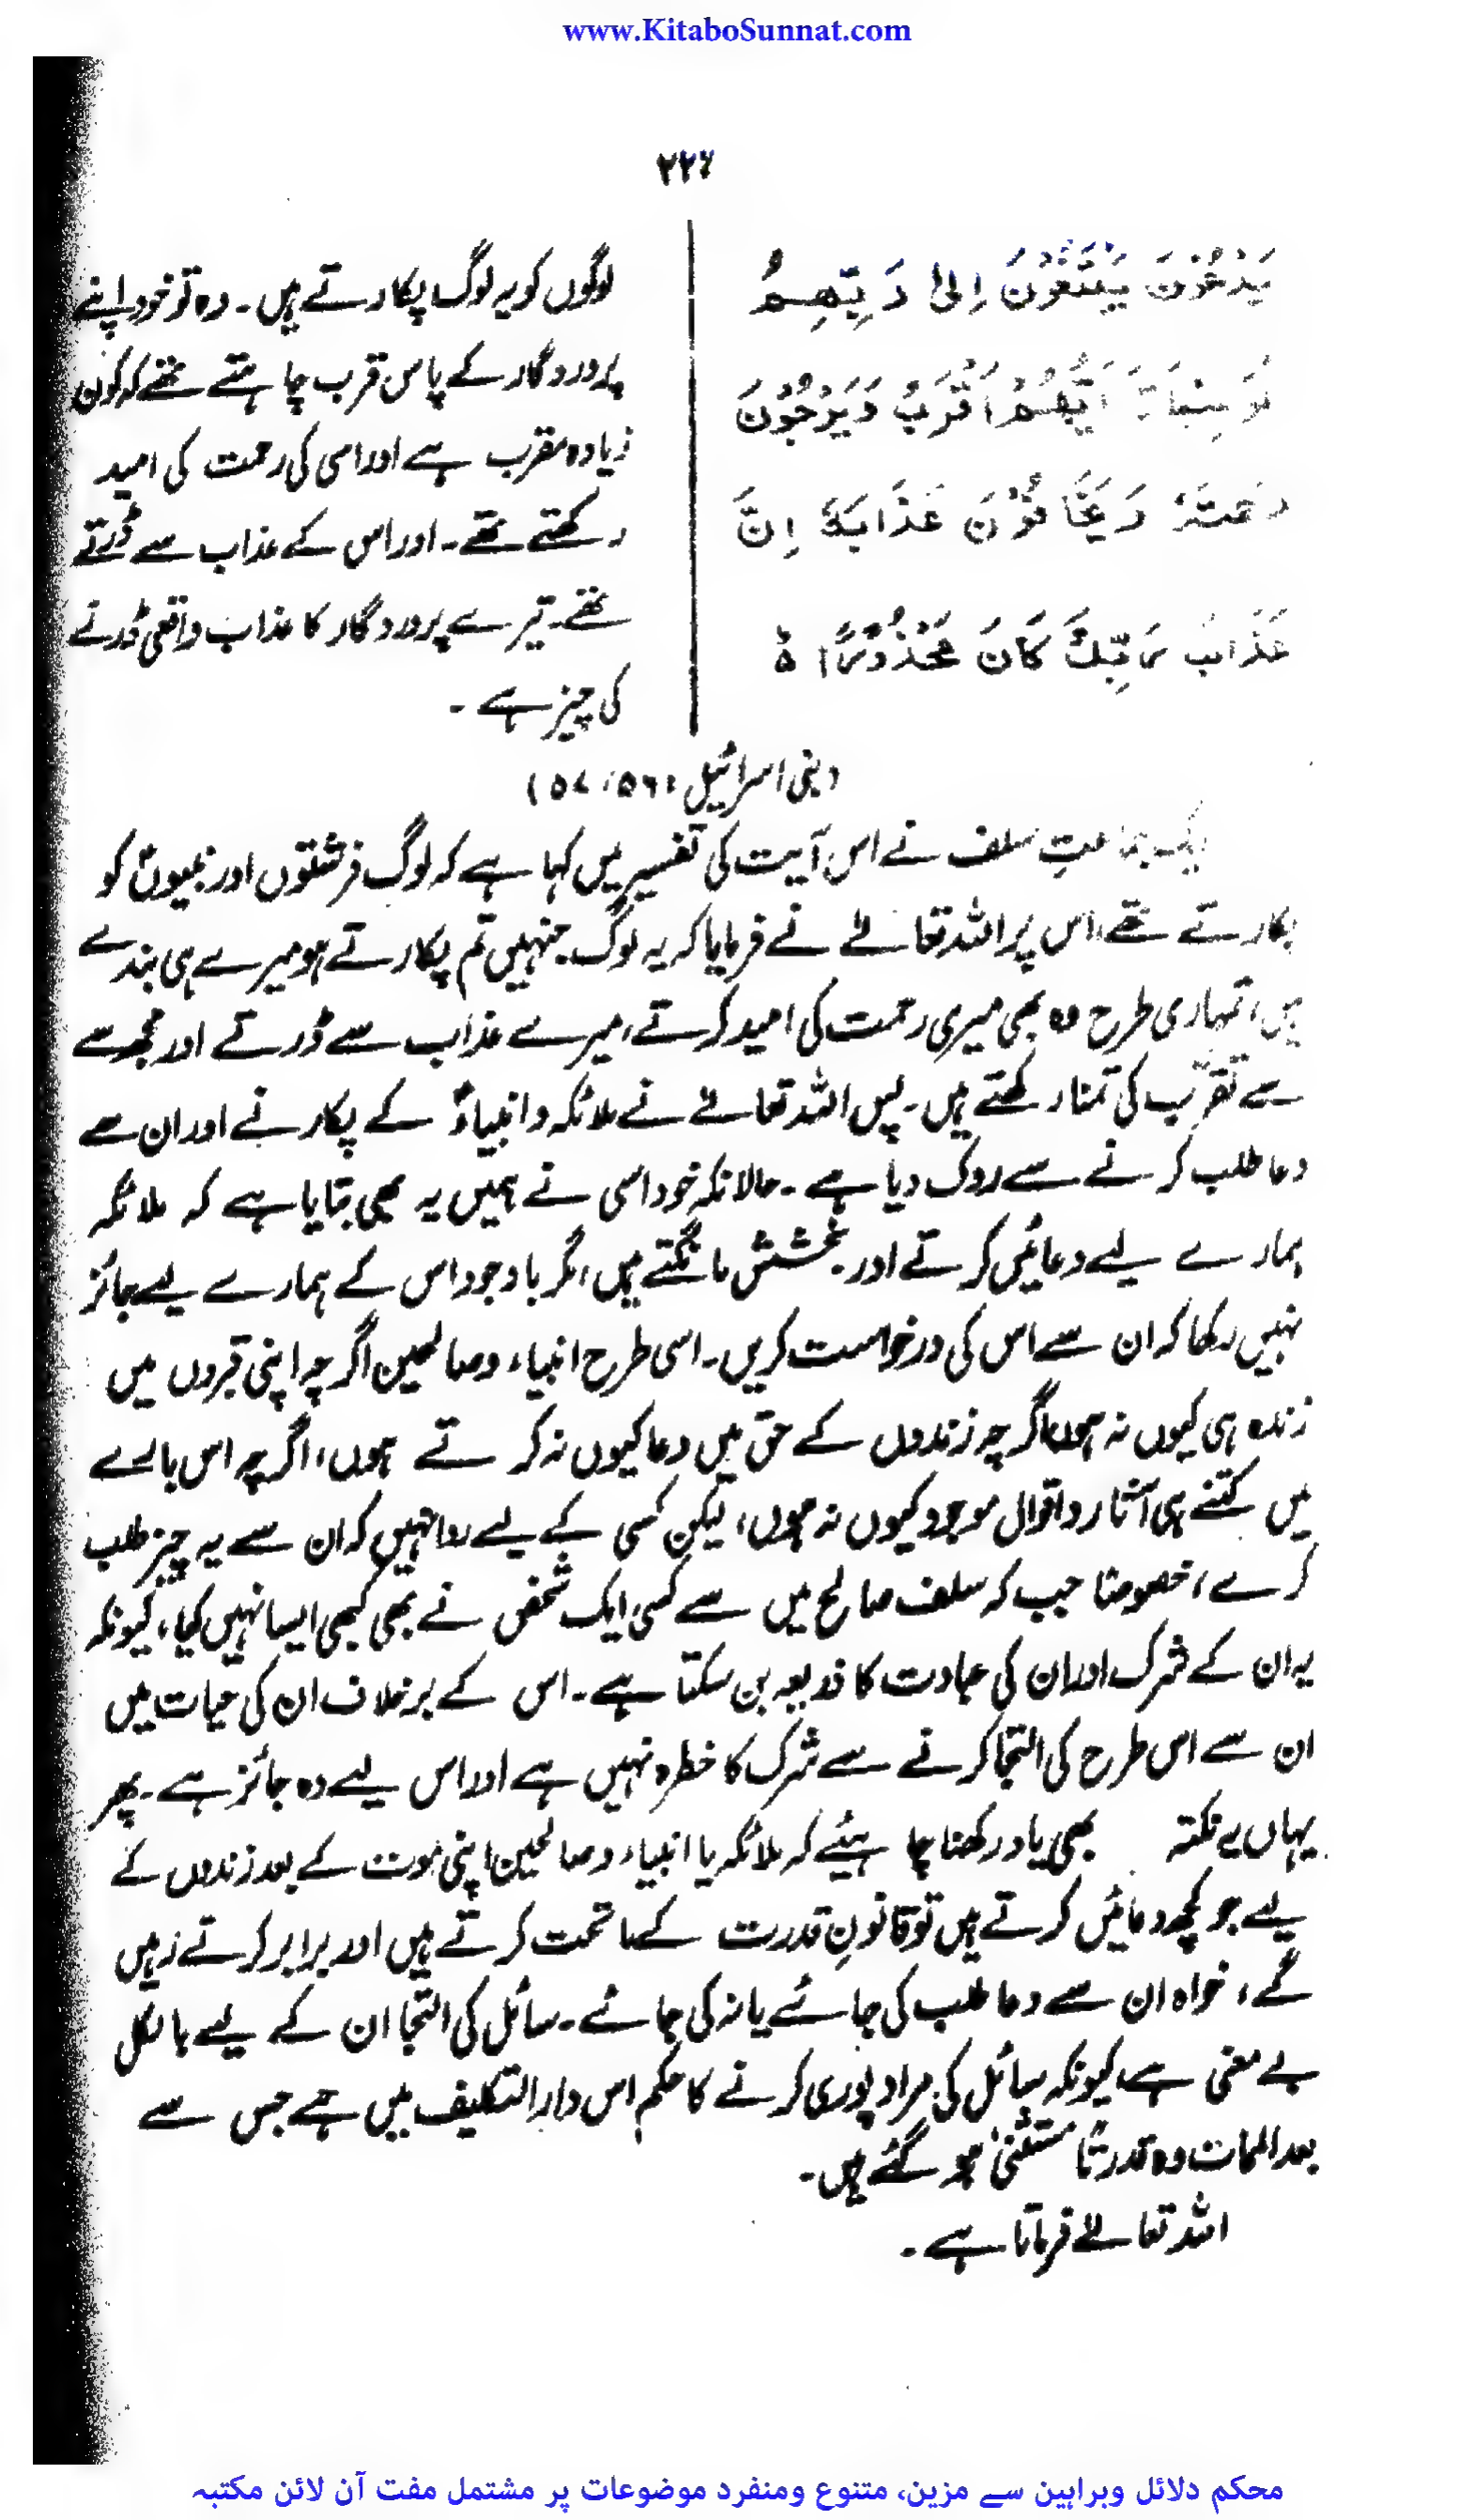 www.KitaboSunnat.com
۲۲۶
یَدْعُوْنَ یَبْتَغُوْنَ اِلٰی رَبِّھِمُ
الْوَسِیْلَۃَ اَیُّھُمْ اَقْرَبُ وَیَرْجُوْنَ
رَحْمَتَہٗ وَیَخَافُوْنَ عَذَابَہٗ اِنَّ
عَذَابَ رَبِّکَ کَانَ مَحْذُوْرًا ہ
لوگوں کو یہ لوگ پکارتے ہیں۔ وہ تو خود اپنے
پروردگار کے پاس قرب چاہتے تھے کہ کون
زیادہ مقرب ہے اور اسی کی رحمت کی امید
رکھتے تھے۔ اور اس کے عذاب سے ڈرتے
تھے۔ تیرے پروردگار کا عذاب واقعی ڈرنے
کی چیز ہے۔
(بنی اسرائیل: ۵۶، ۵۷)
ایک جماعتِ سلف نے اس آیت کی تفسیر میں کہا ہے کہ لوگ فرشتوں اور نبیوںؑ کو
پکارتے تھے، اس پر اللہ تعالےٰ نے فرمایا کہ یہ لوگ جنہیں تم پکارتے ہو میرے ہی بندے
ہیں، تمہاری طرح وہ بھی میری رحمت کی امید کرتے، میرے عذاب سے ڈرتے اور مجھ سے
سے تقرّب کی تمنا رکھتے ہیں۔ پس اللہ تعالےٰ نے ملائکہ و انبیاءؑ کے پکارنے اور ان سے
دعا طلب کرنے سے روک دیا ہے۔ حالانکہ خود اسی نے ہمیں یہ بھی بتایا ہے کہ ملائکہ
ہمارے لیے دعائیں کرتے اور بخشش مانگتے ہیں، مگر باوجود اس کے ہمارے لیے جائز
نہیں رکھا کہ ان سے اس کی درخواست کریں۔ اسی طرح انبیاء و صالحین اگرچہ اپنی قبروں میں
زندہ ہی کیوں نہ ہوں، اگرچہ زندوں کے حق میں دعا کیوں نہ کرتے ہوں، اگرچہ اس بارے
میں کتنے ہی آثار و اقوال موجود کیوں نہ ہوں، لیکن کسی کے لیے روا نہیں کہ ان سے یہ چیز طلب
کرے، خصوصاً جب کہ سلف صالح میں سے کسی ایک شخص نے بھی کبھی ایسا نہیں کیا، کیونکہ
یہ ان کے شرک اور ان کی عبادت کا ذریعہ بن سکتا ہے۔ اس کے برخلاف ان کی حیات میں
ان سے اس طرح کی التجا کرنے سے شرک کا خطرہ نہیں ہے اور اس لیے وہ جائز ہے۔ پھر
یہاں یہ نکتہ بھی یاد رکھنا چاہیئے کہ ملائکہ یا انبیاء و صالحین اپنی موت کے بعد زندوں کے
لیے جو کچھ دعائیں کرتے ہیں تو قانونِ قدرت کے ماتحت کرتے ہیں اور برابر کرتے رہیں
گے، خواہ ان سے دعا طلب کی جائے یا نہ کی جائے۔ سائل کی التجا ان کے لیے بالکل
بے معنی ہے، کیونکہ سائل کی مراد پوری کرنے کا حکم اس دارالتکلیف میں ہے جس سے
بعد الممات وہ قدرتاً مستثنیٰ ہو گئے ہیں۔
اللہ تعالےٰ فرماتا ہے۔
محکم دلائل وبراہین سے مزین، متنوع ومنفرد موضوعات پر مشتمل مفت آن لائن مکتبہ